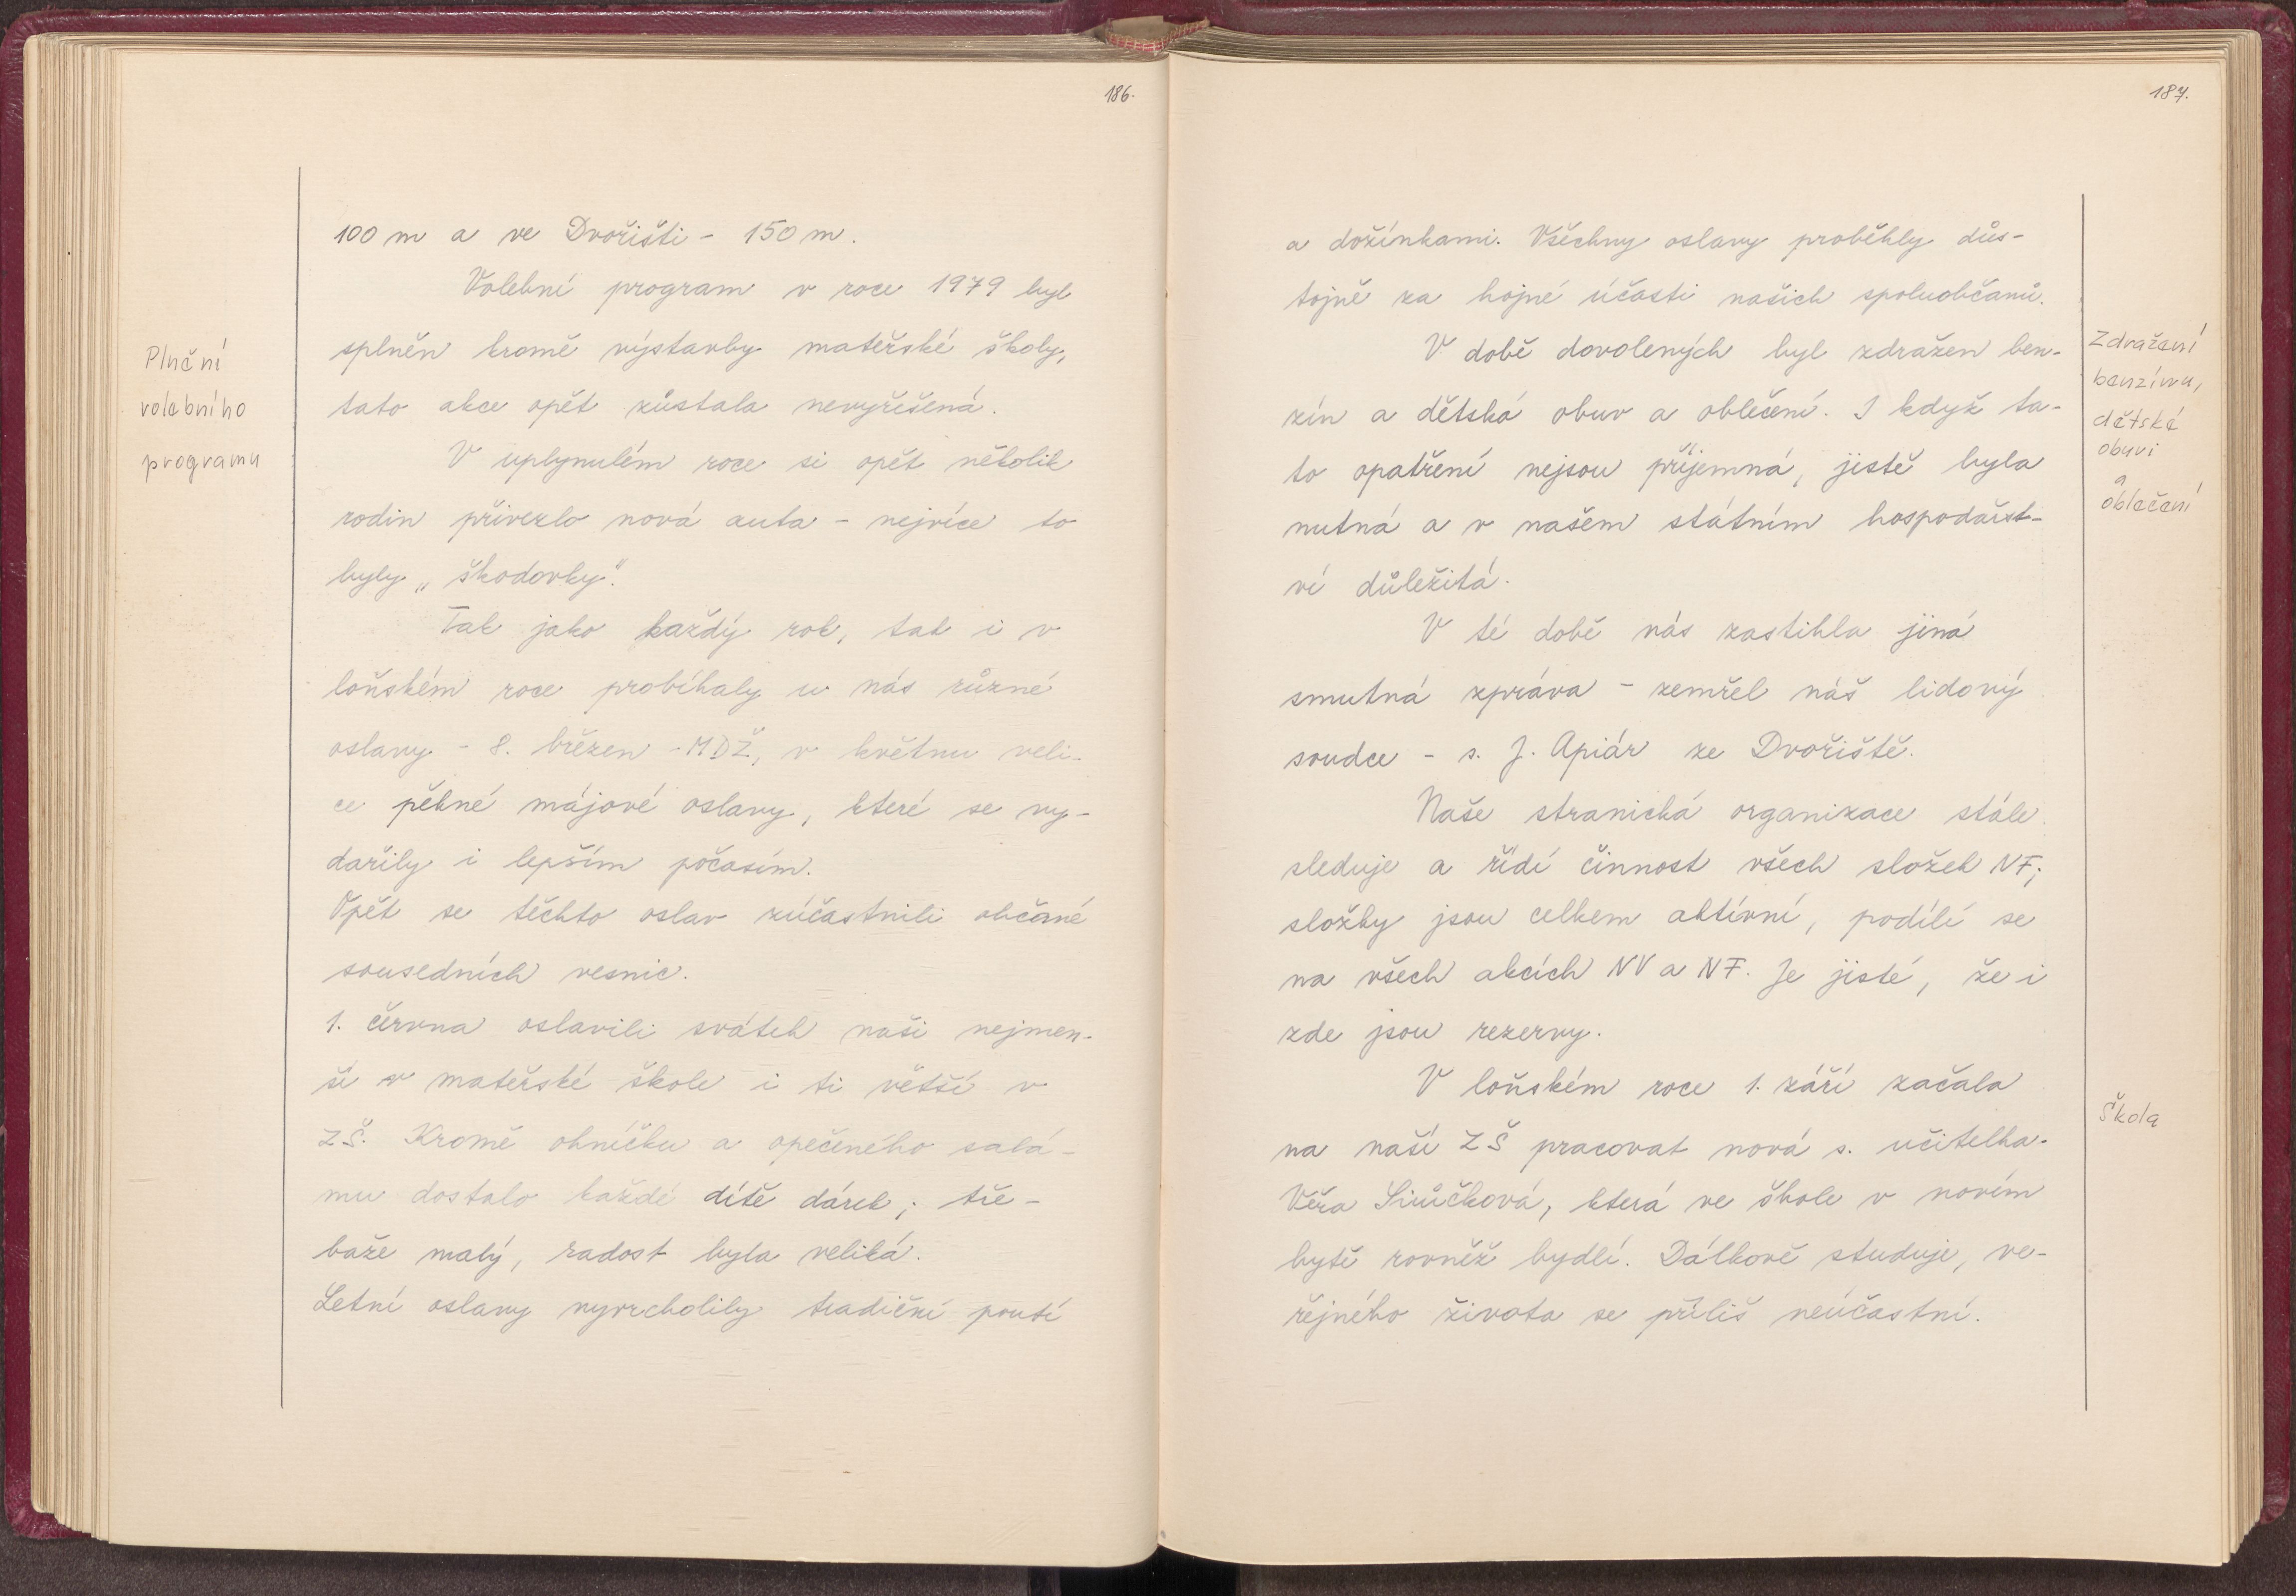 186.
100 m a ve Dvořišti - 150 m.
Volební program v roce 1979 byl
splněn kromě výstavby mateřské školy,
tato akce opět zůstala nevyřešená.
V uplynulém roce si opět několik
rodin přivezlo nová auta - nejvíce to
byly „škodovky".
Tak jako každý rok, tak i v
loňském roce probíhaly u nás různé
oslavy - 8. březen - MDŽ, v květnu veli-
ce pěkné májové oslavy, které se vy-
dařily i lepším počasím.
Opět se těchto oslav zúčastnili občané
sousedních vesnic.
1. června oslavili svátek naši nejmen-
ší v mateřské škole i ti větší v
ZŠ. Kromě ohníčku a opečeného salá-
mu dostalo každé dítě dárek; tře-
baže malý, radost byla veliká.
Letní oslavy vyvrcholily tradiční poutí
Plnění
volebního
programu
187.
a dožínkami. Všechny oslavy proběhly důs-
tojně za hojné účasti našich spoluobčanů.
V době dovolených byl zdražen ben-
zín a dětská obuv a oblečení. I když ta-
to opatření nejsou příjemná, jistě byla
nutná a v našem státním hospodářst-
ví důležitá.
V té době nás zastihla jiná
smutná zpráva - zemřel náš lidový
soudce - s. J. Apiár ze Dvořiště.
Naše stranická organizace stále
sleduje a řídí činnost všech složek NF;
složky jsou celkem aktivní, podílí se
na všech akcích NV a NF. Je jisté, že i
zde jsou rezervy.
V loňském roce 1. září začala
na naší ZŠ pracovat nová s. učitelka.
Věra Sirůčková, která ve škole v novém
bytě rovněž bydlí. Dálkově studuje, ve-
řejného života se příliš neúčastní.
Zdražení
benzínu,
dětské
obuvi
a
oblečení
Škola